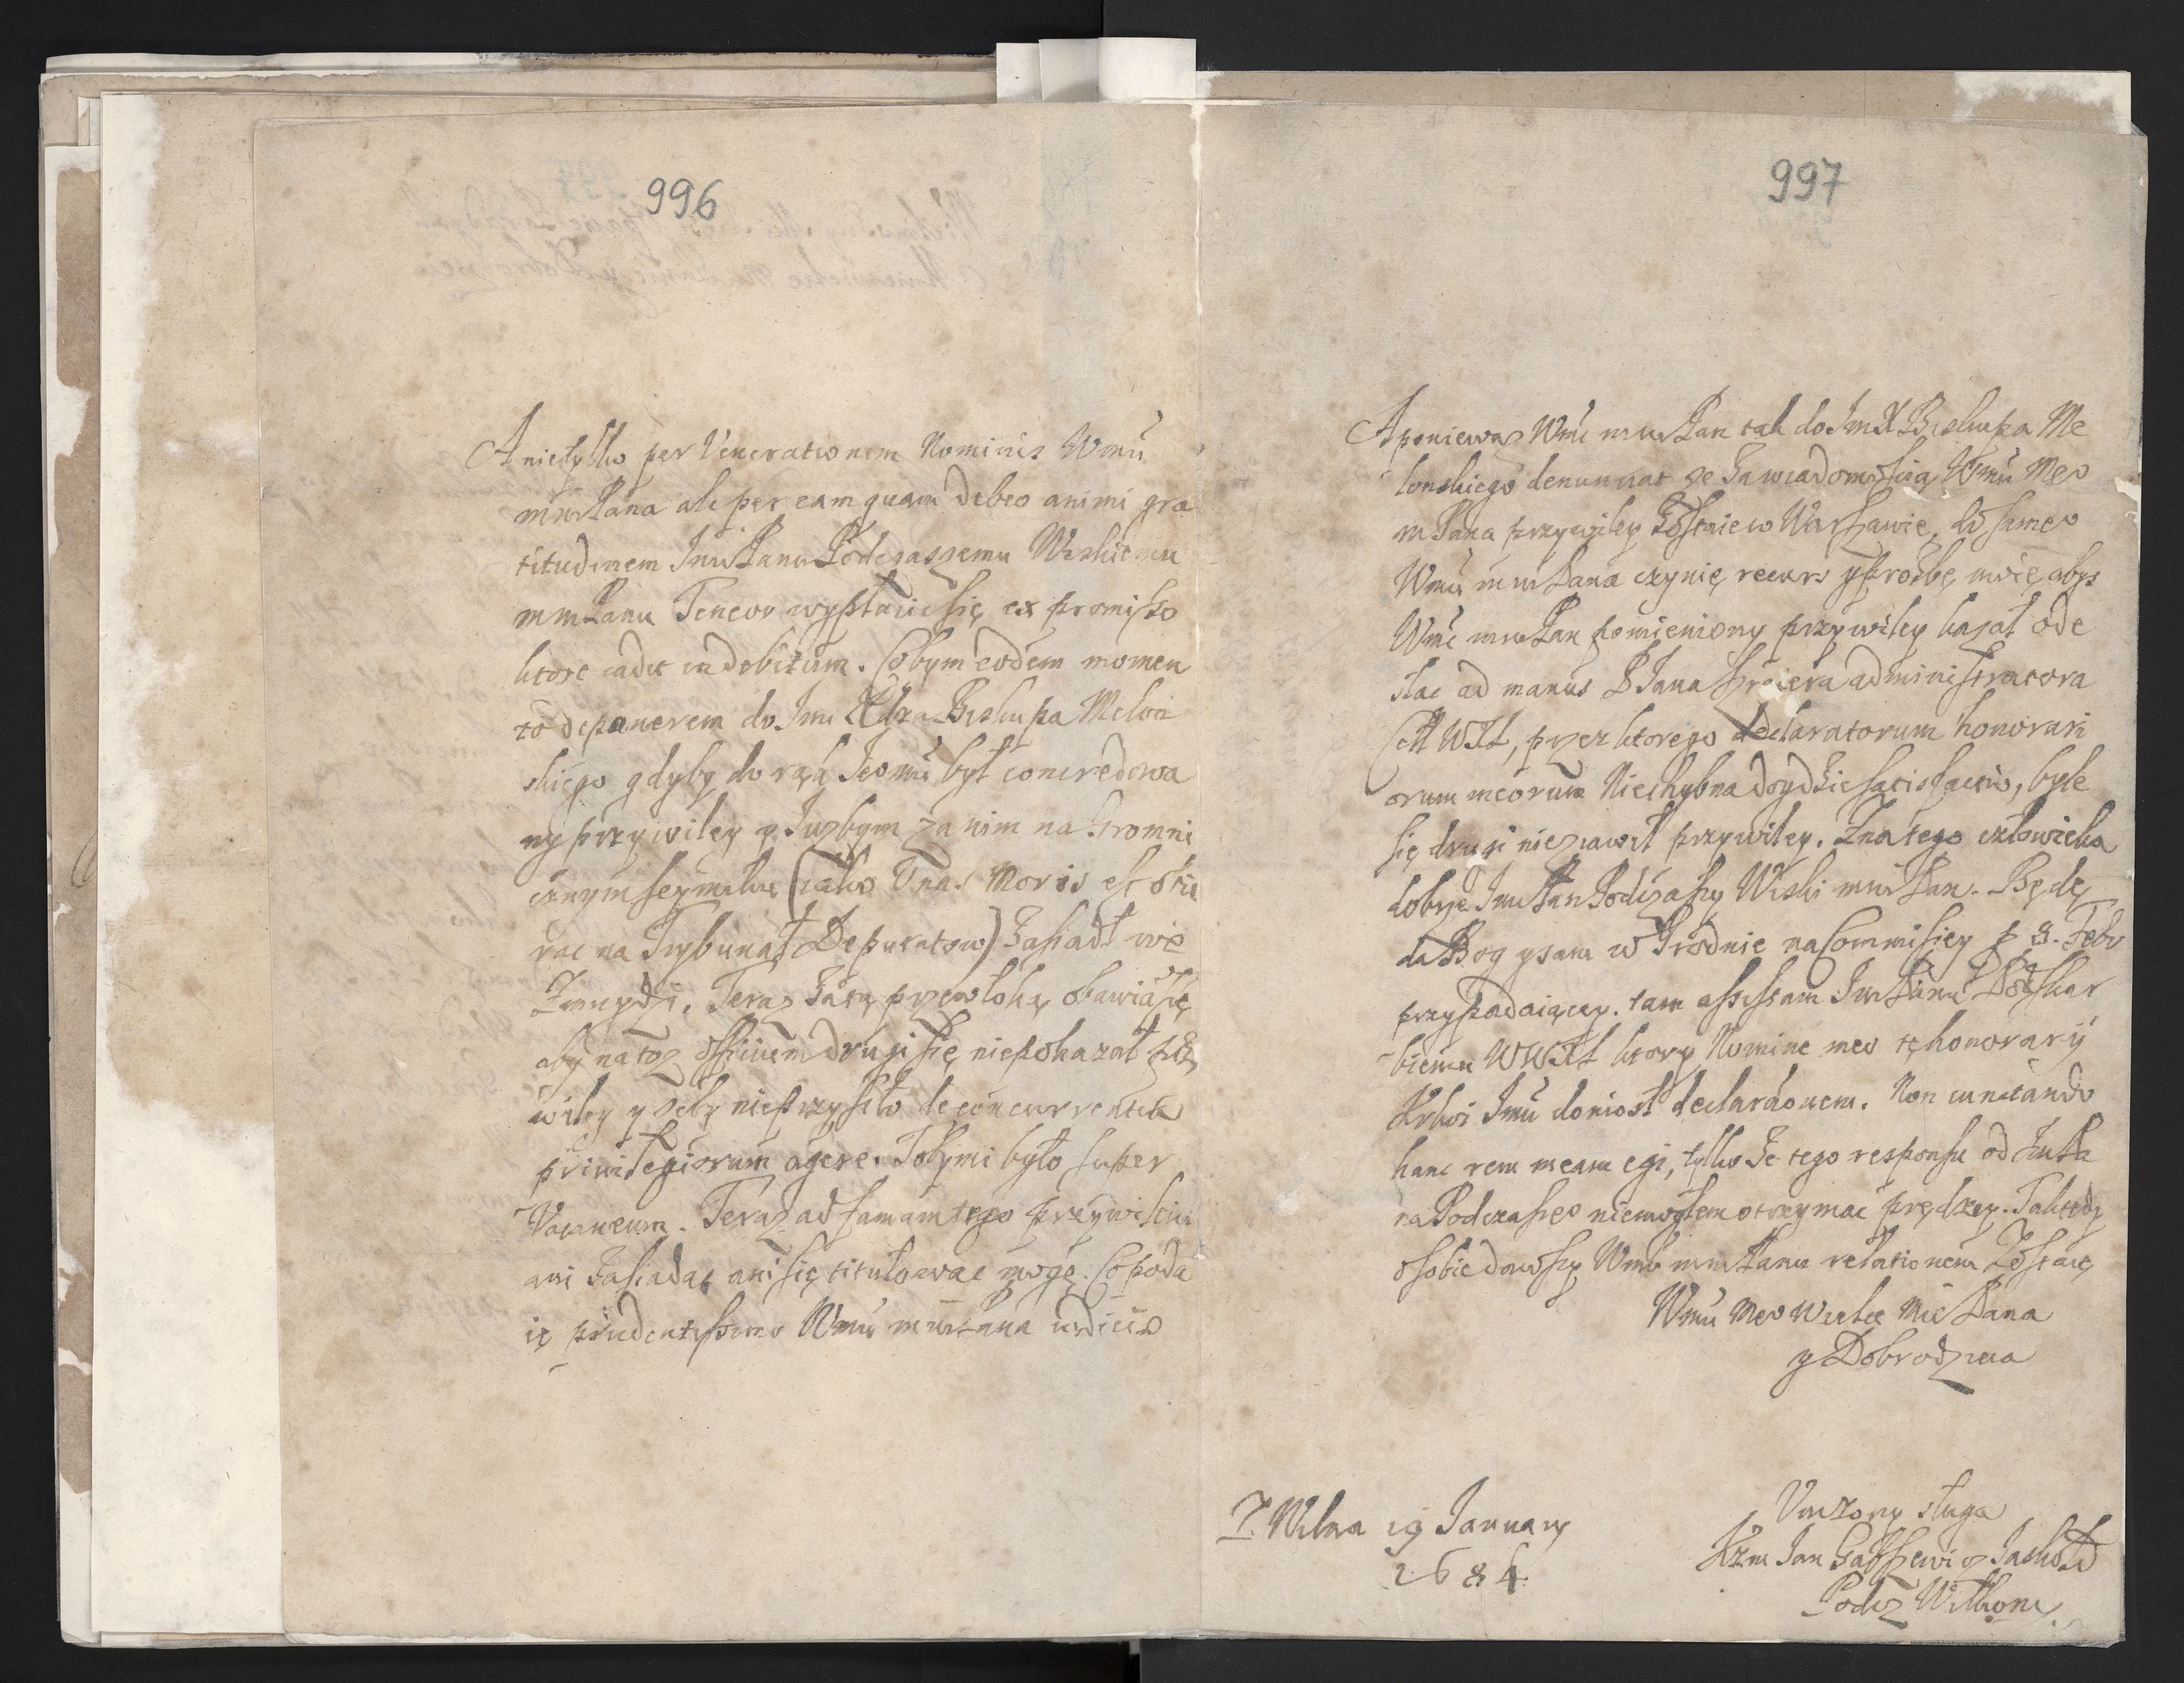 996
A nie tylko per Venerationem Nominis Wmci
mm Pana ale per eam quam debeo animi gra
titudinem Jm Panu Podczaszemu Wiskiemu
mm Panu Teneor wypłacic się ex promisso
ktore cadit in debitum. Cobym eodem momen
to deponerem do Jm Xdza Biskupa Meloń
skiego gdyby do rąk Jeomci był concredowa
ny przywiley y Juzbym za nim na Gromni
cznym seymiku (iako Vnas Moris est obie
rac na Trybunał Deputatow) Zasiadł mie
Teraz Zatą przewłoką obawiam się
aby na toz officium drugi się niepokazał przy
wiley y zeby nieprzyszło de concurrentia
privilegiorum agere. Toby mi było super
Vacaneum. Teraz ad famam tego przywileiu
ani Zasiadac ani się titułowac mogę. Co poda
ię prudentissimo Wmci mm Pana iudicio
997
A poniewaz Wmc mm Pan tak do Jm X Biskupa Me
lonskiego denuntiat ze Zawiadomoscią Wmci Meo
m Pana przywiley Zostaie w Warszawie, do sameo
Wmci mm Pana czynię recurs y prosbę moię abys
Wmc mm Pan pomieniony przywiley kazał ode
słac ad manus P Jana administratora
Ceł WXL, przez ktorego declaratorum honorari
orum meorum Niechybna doydzie satisfactio, byle
się drugi niezjawił przywiley. Zna tego człowieka
dobrze Jm Pan Podczaszy Wiski mm Pan. Będę
da Bog y sam w Grodnie na Commisiey p 8. Febr
przypadaiącey. tam assistam Jm Panu Podskar
biemu WWXL ktory Nomine meo tę honorarij
Krloi Jmci doniosł declaraonem. Non cunctando
hanc rem meam egi, tylko Ze tego responsu od Jm Pa
na Podczaszeo niemogłem otrzymac prędzey. Tak tedy
osobie dawszy Wmci mm Panu relationem Zostaię
Wmci Meo Wielce Mci Pana
y Dobrodzieia
Z Wilna 19 January
1684
Vnizony sługa
Kzm Jan Jaskold
Podcz Wilkom